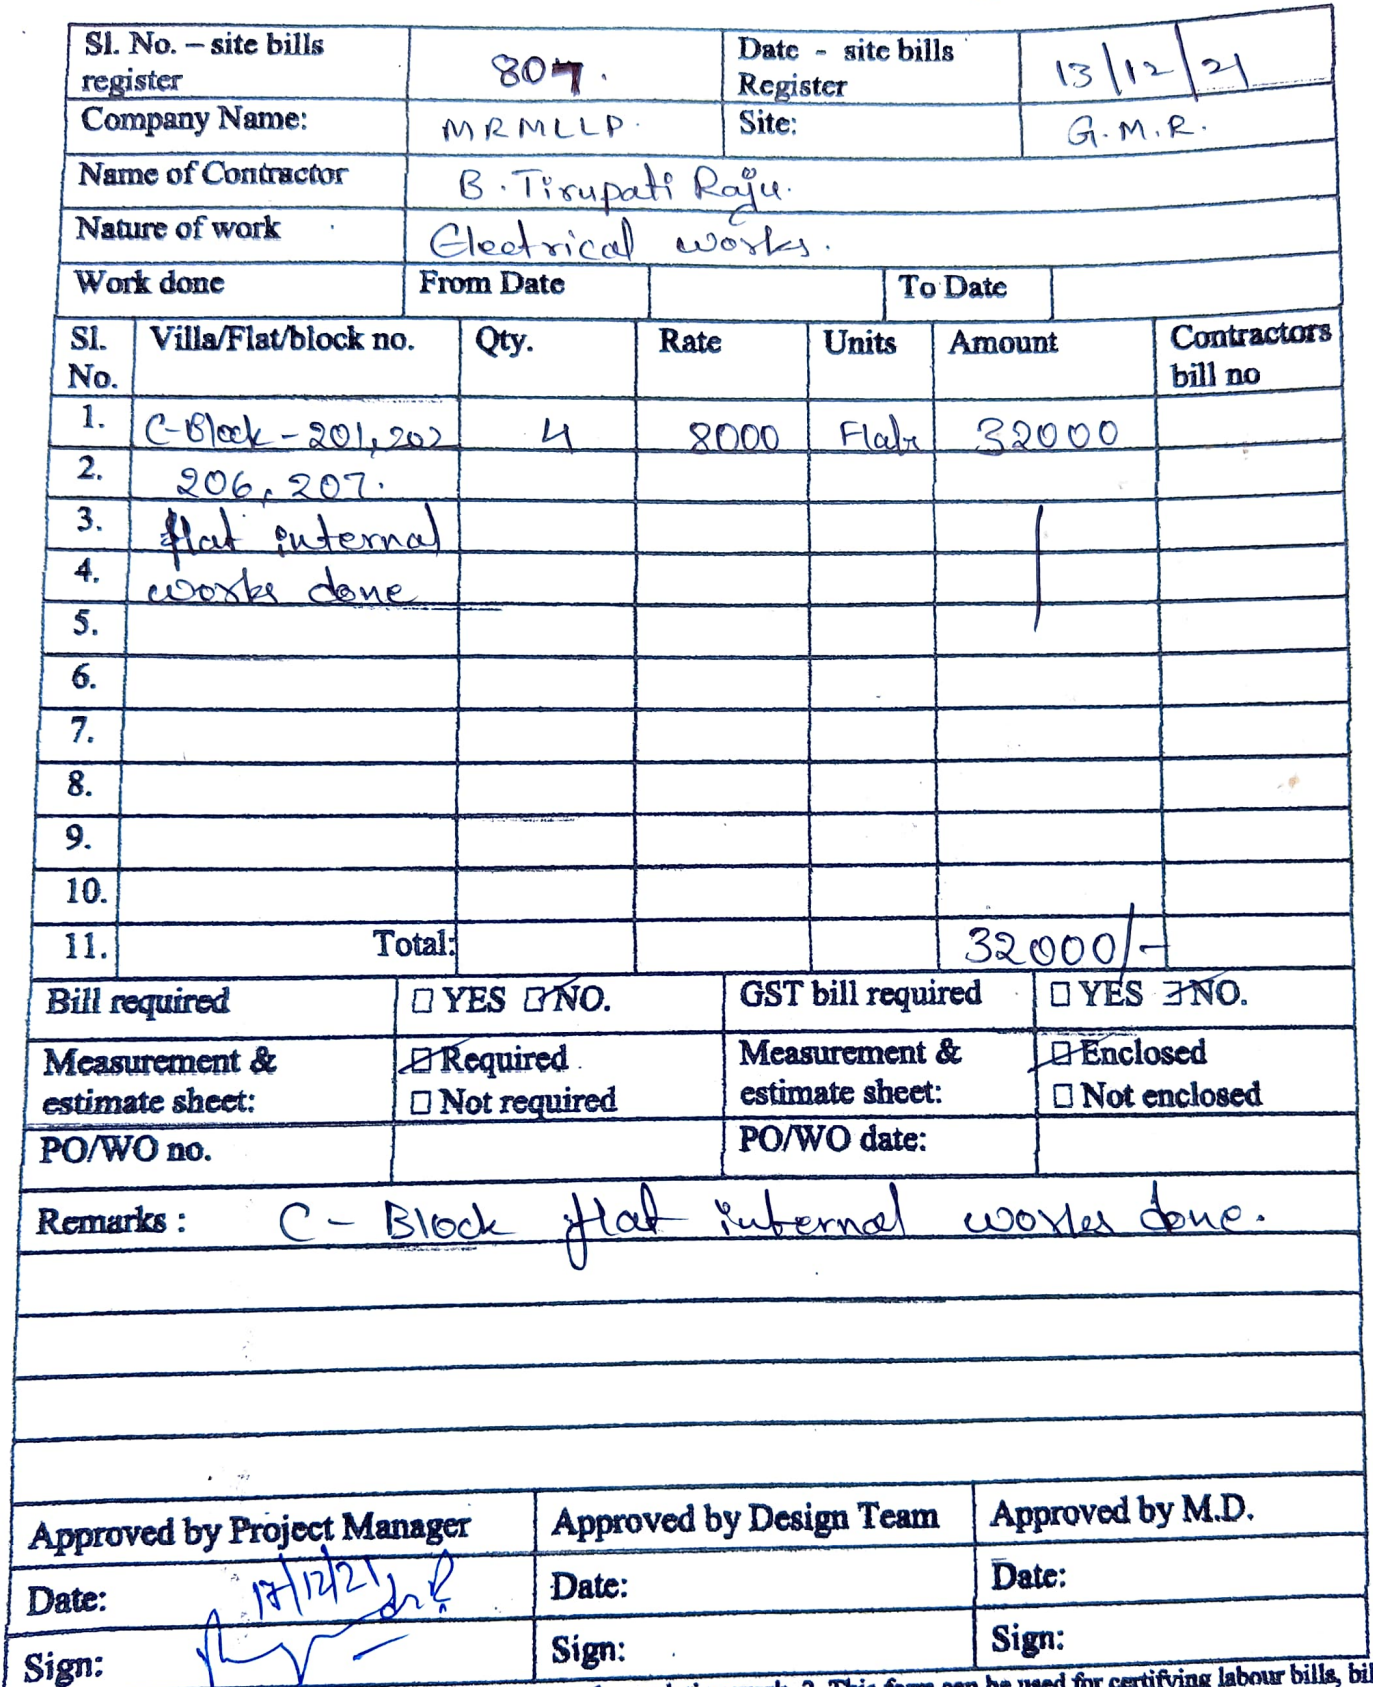 Sl. No. – site bills register 807. Date - site bills Register 13/12/21
Company Name: MRMLLP. Site: G.M.R.
Name of Contractor B. Tirupati Raju.
Nature of work Electrical works.
Work done From Date To Date
Sl. No. Villa/Flat/block no. Qty. Rate Units Amount Contractors bill no
1. C-Block - 201, 202 4 8000 Flats 32000
2. 206, 207.
3. flat internal
4. works done
5.
6.
7.
8.
9.
10.
11. Total: 32000/-
Bill required ☐ YES ☑ NO. GST bill required ☐ YES ☑ NO.
Measurement & estimate sheet: ☑ Required Measurement & estimate sheet: ☑ Enclosed
☐ Not required ☐ Not enclosed
PO/WO no. PO/WO date:
Remarks : C - Block flat internal works done.
Approved by Project Manager Approved by Design Team Approved by M.D.
Date: 17/12/21 Date: Date:
Sign: Sign: Sign:
This form can be used for certifying labour bills, bil